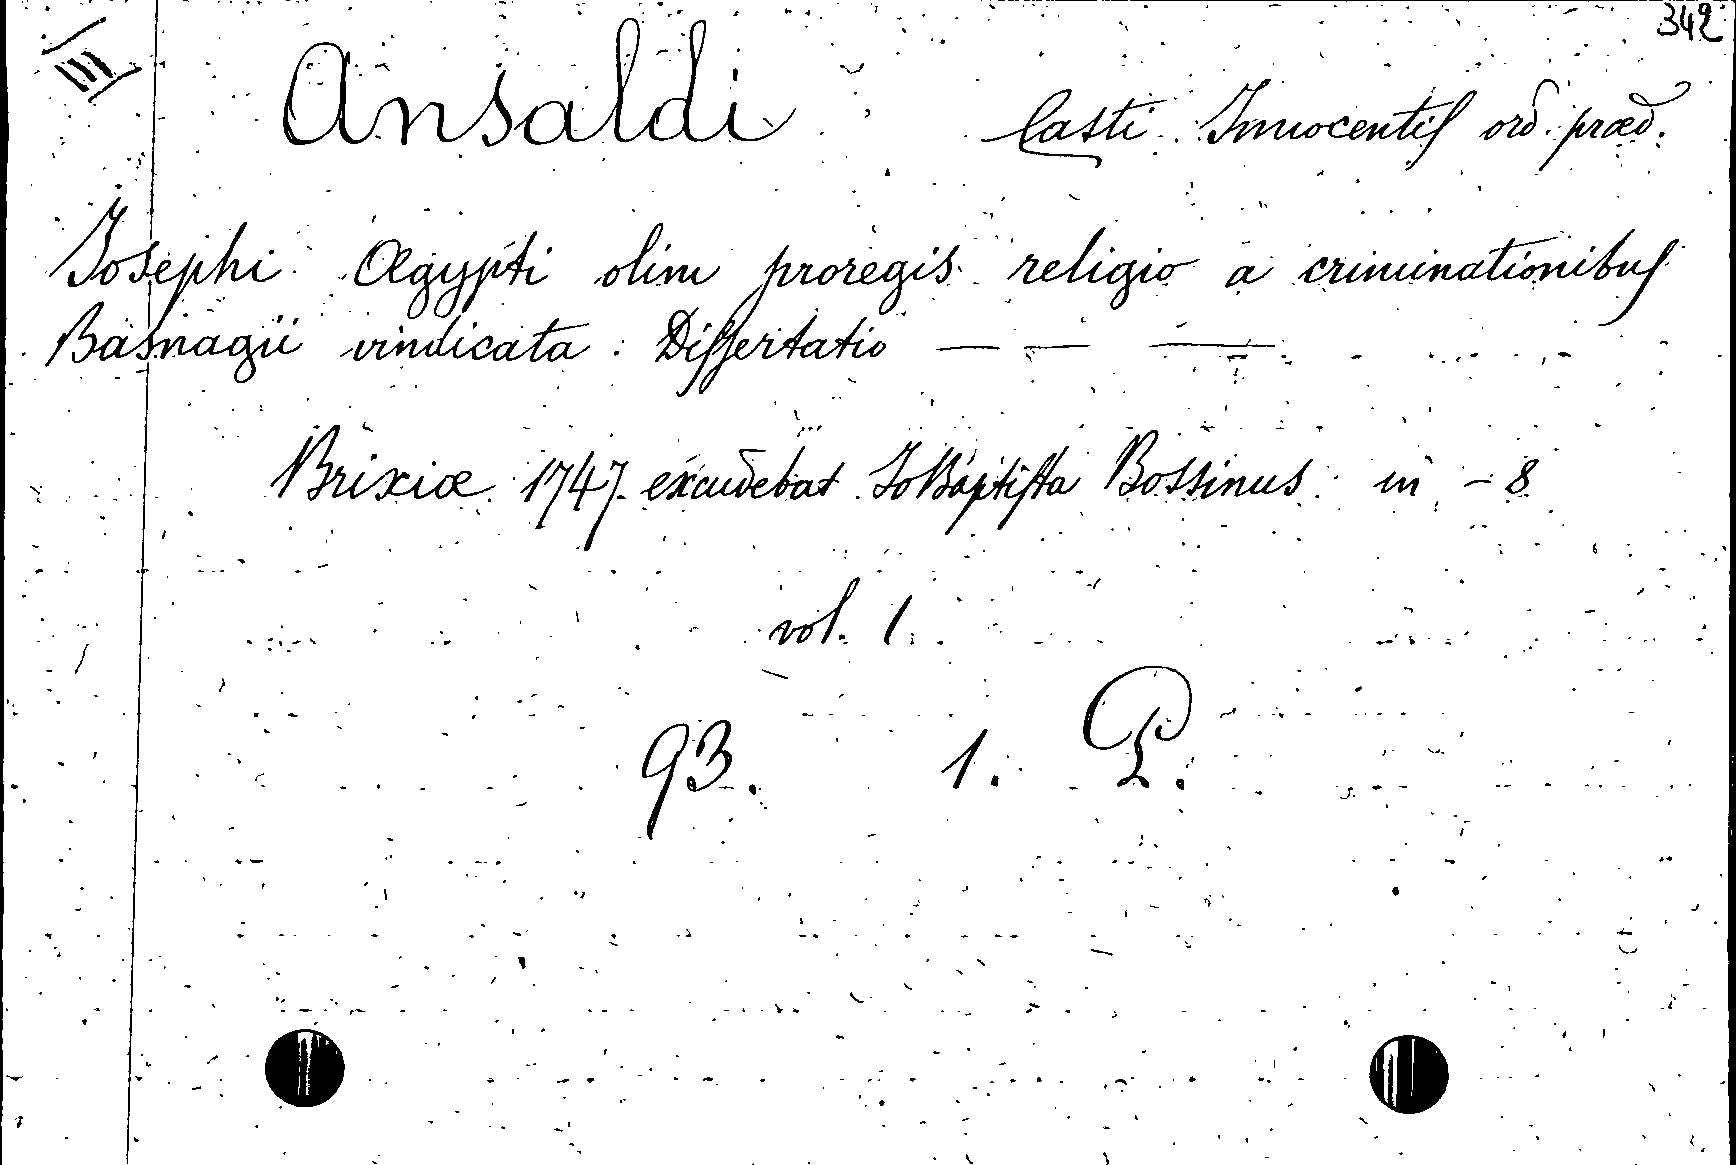 342
III
Ansaldi Casti Innocentis ord. præd.
Josephi Ægypti olim proregis religio a criminationibus
Basnagii vindicata : Dissertatio — — —
Brixiæ 1747. excudebat Jo Baptista Bossinus in - 8
vol. 1.
93. 1. P.